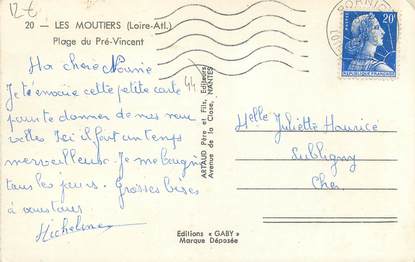 12 €
20 — LES MOUTIERS (Loire-Atl.)
Plage du Pré-Vincent
Ma chère Nounie
Je t'envoie cette petite carte
pour te donner de mes nou
velles Ici il fait un temps
merveilleux. Je me baigne
tous les jours. Grosses bises
à vous tous
Micheline
44
ARTAUD Père et Fils, Editeurs
Avenue de la Close, NANTES
PORNIC
POSTES
20F
REPUBLIQUE FRANÇAISE
Melle Juliette Maurice
Subligny
Cher
Editions « GABY »
Marque Déposée